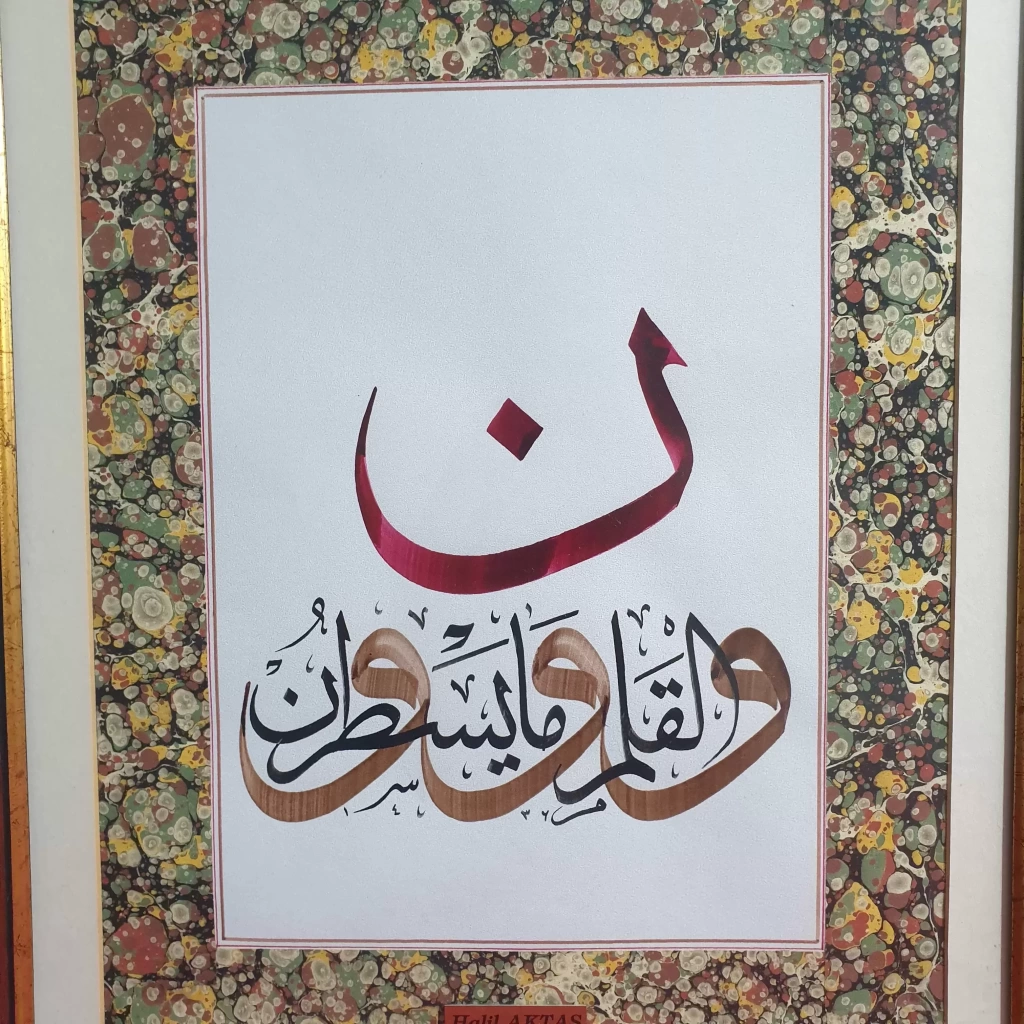 ن
والقلم وما يسطرون
١٤٣٦
Halil AKTAŞ